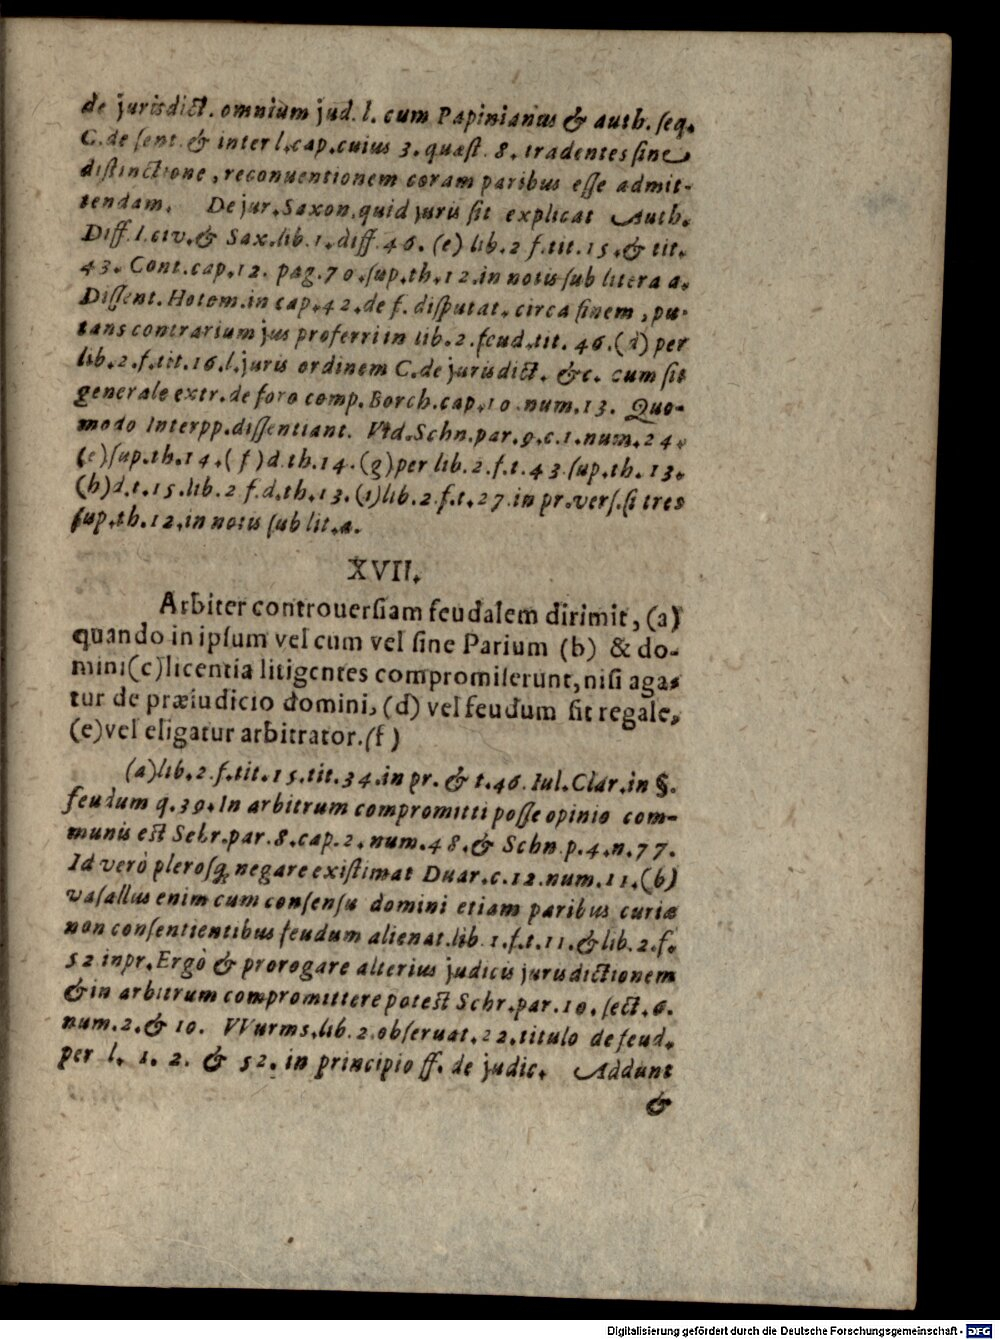 de jurisdict. omnium jud. l. cum Papinianus & auth. ſeq.
C. de ſent. & inter l. cap. cuius 3. quæſt. 8. tradentes ſine
diſtinctione, reconuentionem coram paribus eſſe admit-
tendam. De jur. Saxon. quid juris ſit explicat Auth.
Diff. I. civ. & Sax. lib. 1. diff. 46. (e) lib. 2 f. tit. 15. & tit.
43. Cont. cap. 12. pag. 70. ſup. th. 12. in notis ſub litera a.
Diſſent. Hotom. in cap. 42. de f. diſputat. circa finem, pu-
tans contrarium jus proferri in lib. 2. feud. tit. 46. (d) per
lib. 2. f. tit. 16. l. juris ordinem C. de jurisdict. &c. cum ſit
generale extr. de foro comp. Borch. cap. 10. num. 13. Quo-
modo Interpp. diſſentiant. Vid. Schn. par. 9. c. 1. num. 24.
(e) ſup. th. 14. (f) d. th. 14. (g) per lib. 2. f. t. 43. ſup. th. 13.
(h) d. t. 15. lib. 2 f. d. th. 13. (i) lib. 2. f. t. 27. in pr. verſ. ſi tres
ſup. th. 12. in notis ſub lit. a.
XVII.
Arbiter controuerſiam feudalem dirimit, (a)
quando in ipſum vel cum vel ſine Parium (b) & do-
mini (c) licentia litigentes compromiſerunt, niſi aga-
tur de præiudicio domini, (d) vel feudum ſit regale,
(e) vel eligatur arbitrator. (f)
(a) lib. 2. f. tit. 15. tit. 34. in pr. & t. 46. Iul. Clar. in §.
feudum q. 39. In arbitrum compromitti poſſe opinio com-
munis eſt Schr. par. 8. cap. 2. num. 48. & Schn p. 4. n. 77.
Id verò pleroſq; negare exiſtimat Duar. c. 12. num. 11. (b)
vaſallus enim cum conſenſu domini etiam paribus curiæ
non conſentientibus feudum alienat. lib. 1. f. t. 11. & lib. 2. f.
52 in pr. Ergò & prorogare alterius judicis jurisdictionem
& in arbitrum compromittere poteſt Schr. par. 10. ſect. 6.
num. 2. & 10. VVurms. lib. 2. obſeruat. 22. titulo de feud.
per l. 1. 2. & 52. in principio ff. de judic. Addunt
&
Digitalisierung gefördert durch die Deutsche Forschungsgemeinschaft - DFG